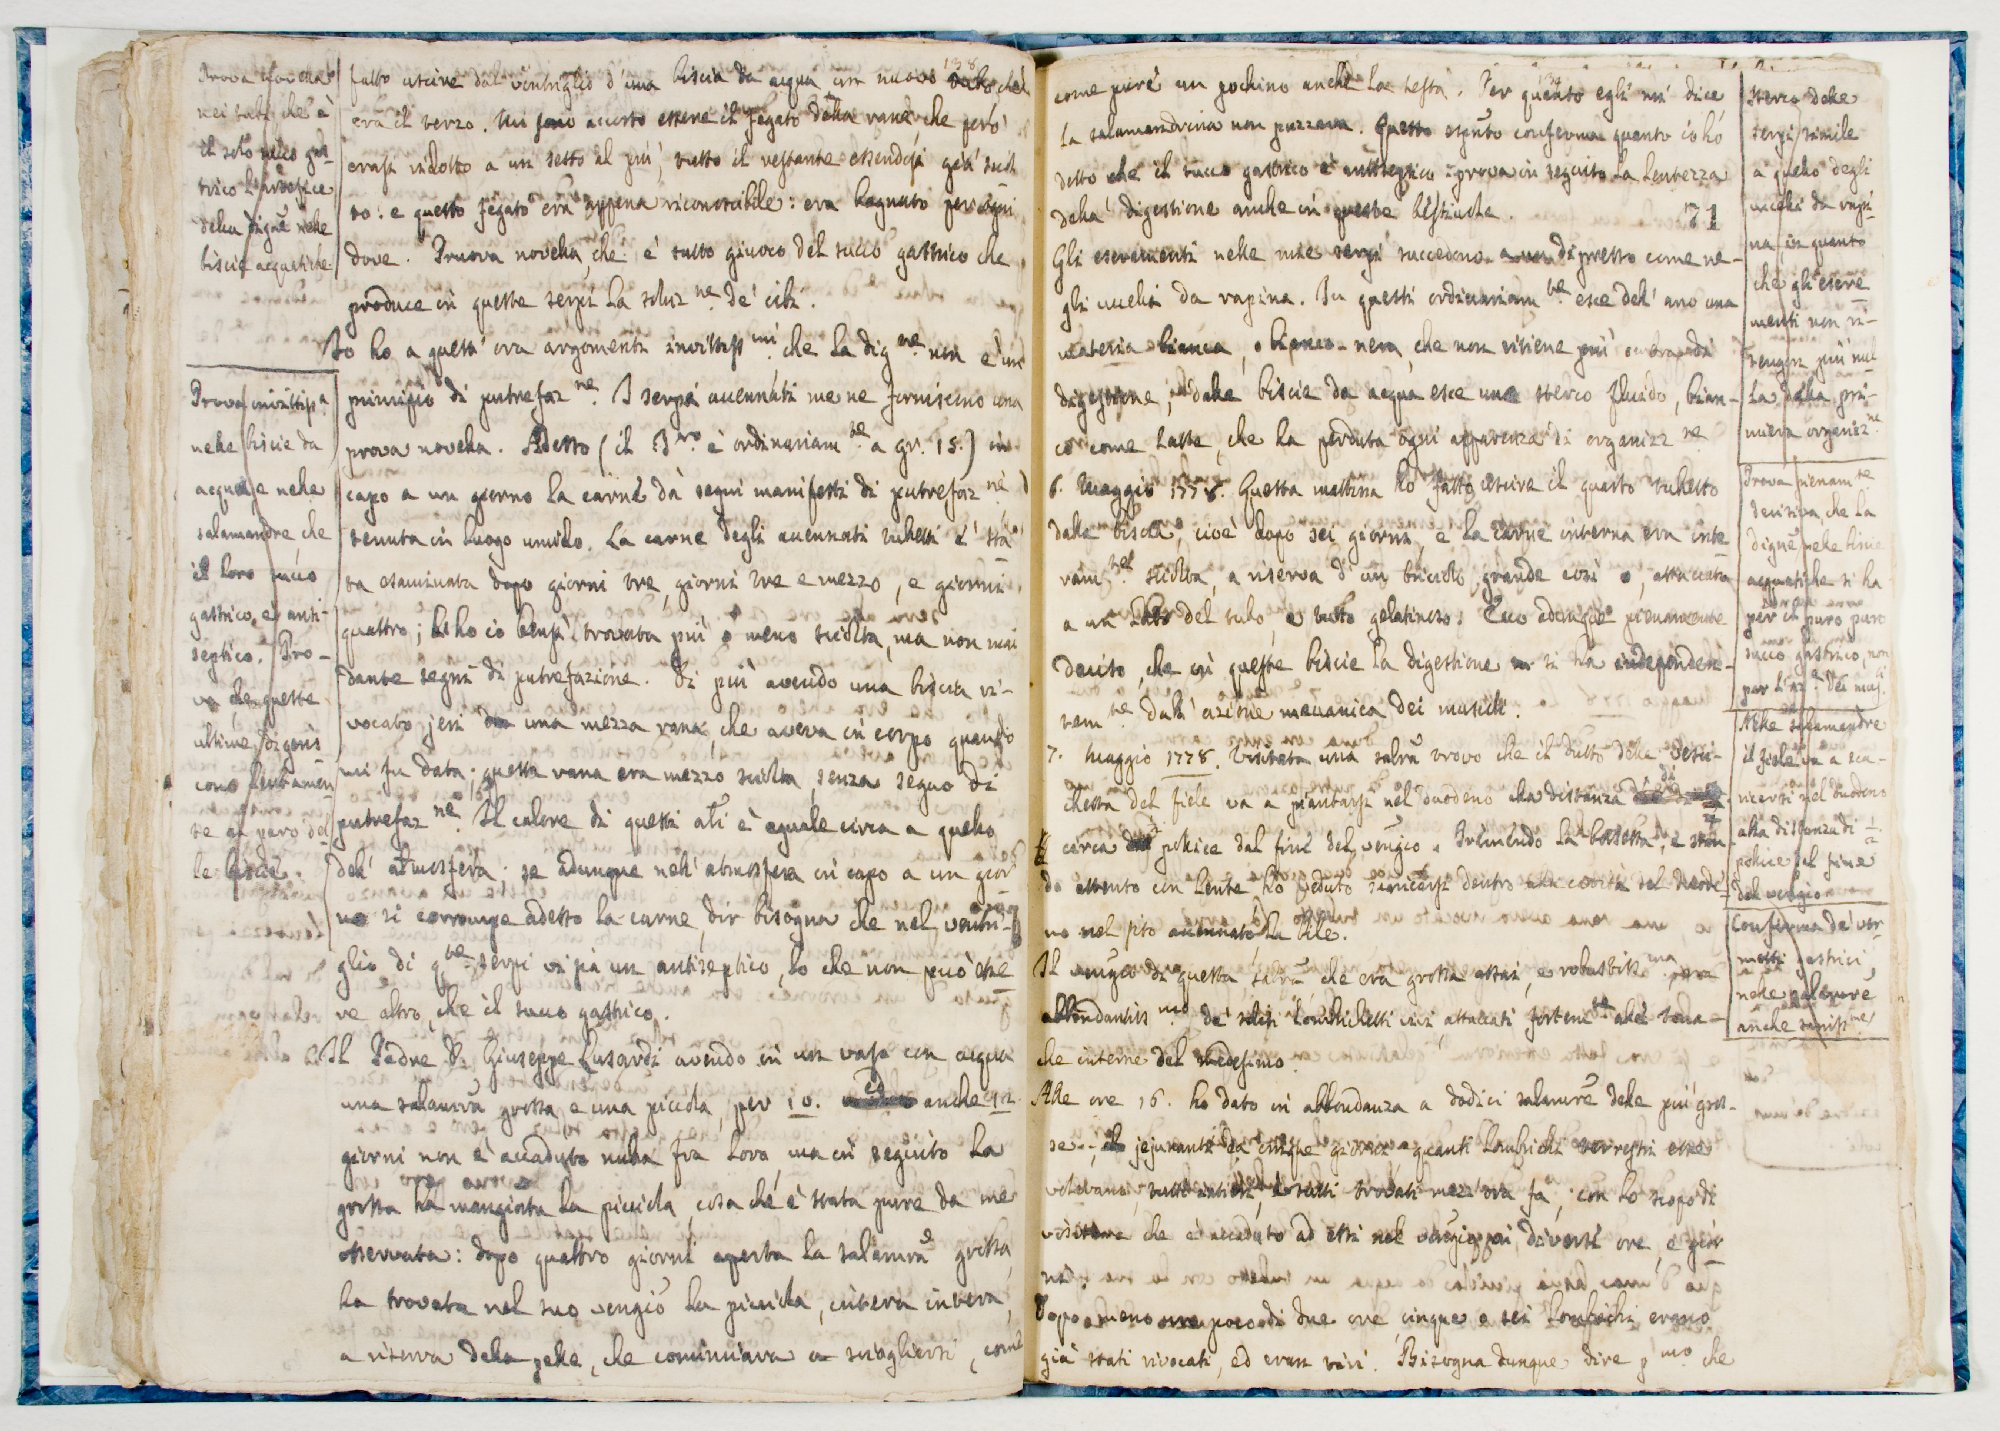 Prova novella
nei tubi che è
il solo succo gas-
trico l'artefice
della digne nelle
biscie acquatiche
Prova invittissa
nelle biscie da
acqua, e nelle
salamandre, che
il loro succo
gastrico, è anti-
septico. Pro-
va che queste
ultime digeris
cono lentamen
te al paro del
le biscie.
138
fatto uscire dal ventriglio d'una biscia da acqua un nuovo tubo, che
era il terzo. Mi sono accorto essere il fegato della rana, che però
erasi ridotto a un sesto al più, tutto il restante essendosi già sciol
to: e questo fegato era appena riconoscibile: era bagnato per ogni
dove. Pruova novella, che è tutto giuoco del succo gastrico che
produce in queste serpi la soluzne de' cibi.
Io ho a quest' ora argomenti invittissmi che la digne non è un
principio di putrefazne. I serpi accennati me ne forniscono una
prova novella. Adesso (il Tro è ordinariamte a gr. 15.) in
capo a un giorno la carne dà segni manifesti di putrefazne,
tenuta in luogo umido. La carne degli accennati tubetti è sta
ta esaminata dopo giorni tre, giorni tre e mezzo, e giorni
quattro; l'ho io bensì trovata più o meno sciolta, ma non mai
dante segni di putrefazione. Di più avendo una biscia ri-
vocato jeri una mezza rana, che aveva in corpo quando
mi fu data; questa rana era mezzo sciolta, senza segno di
putrefazne. Il calore di questi ali è eguale circa a quello
dell' atmosfera. se adunque nell' atmosfera in capo a un gior
no si corrompe adesso la carne, dir bisogna che nel ventri-
glio di qte serpi vi sia un antiseptico, lo che non può esse
re altro, che il succo gastrico.
Il Padre D. Giuseppe Lusardi avendo in un vaso con acqua
una salamra grossa, e una piccola, per 10. ed anche 12
giorni non è accaduto nulla fra loro, ma in seguito la
grossa ha mangiata la piccola, cosa che è stata pure da me
osservata: dopo quattro giorni aperta la salamra grossa,
ha trovata nel suo vengio la piccola, intera intera,
a riserva della pelle, che cominciava a sciogliersi, come
come pure un pochino anche la testa. Per quanto egli mi dice
la salamandrina non puzzava. Questo esento conferma quanto io ho
detto che il succo gastrico è antiseptico: prova in seguito la lentezza
della digestione anche in queste bestiuole.
71
Gli escrementi nelle mie serpi succedono a un dipresso come ne-
gli uccelli da rapina. In questi ordinariamte esce dell' ano una
materia bianca, o bianco-nera, che non ritiene più ombra di
digestione, dalle biscie da acqua esce uno sterco fluido, bian-
co come latte, che ha perduta ogni apparenza di organizzne
6. Maggio 1778. Questa mattina ho fatto uscire il quarto tubetto
dalle biscia, cioè dopo sei giorni, e la carne interna era inte
ramte sciolta, a riserva d' un briciolo, grande così o, attaccato
a un lato del tubo, e tutto gelatinoso: Ecco adunque pienamente
deciso, che in queste biscie la digestione si ha independen-
temte dall' azione meccanica dei muscoli.
7. Maggio 1778. Visitata una salra trovo che il dutto della vesci-
chetta del fiele va a piantarsi nel duodeno alla distanza di
circa pollice dal fine del vengio. Premendo la borsetta, e stan-
do attento con lente ho veduto scaricarsi dentro alla cavità del duode-
no nel sito accennato la bile.
Il vengio di questa salra che era grossa assai, e robustissma, era
abbondantissmo de' soliti lombrichetti vivi, attaccati fortemte alle tona-
che interne del medesimo.
Alle ore 16. ho dato in abbondanza a dodici salamre delle più gros-
se, jejunanti da cinque giorni, quanti lombrichi terrestri esse
volevano, tutti intieri, e tutti trovati mezz' ora fa, con lo scopo di
visitare che è accaduto ad essi nel vengio, poi diverse ore, e gior
ni.
Dopo a meno poco di due ore cinque o sei lombrichi erano
già stati rivocati, ed eran vivi. Bisogna dunque dire pmo che
Sterco delle
serpi simile
a quello degli
uccelli da rapi-
na, in quanto
che gli escre
menti non ri-
tengon più nul
la della pri-
miera organizne
Prova pienamte
decisiva, che la
digne nelle biscie
acquatiche si ha
per il puro puro
succo gastrico, non
per l'azne dei musli
Nelle salamandre
il fiele va a sca-
ricarsi nel duodeno
alla distanza di 1/2
pollice dal fine
del vengio
Conferma de' ver-
metti gastrici
nelle salamre
anche sanissme